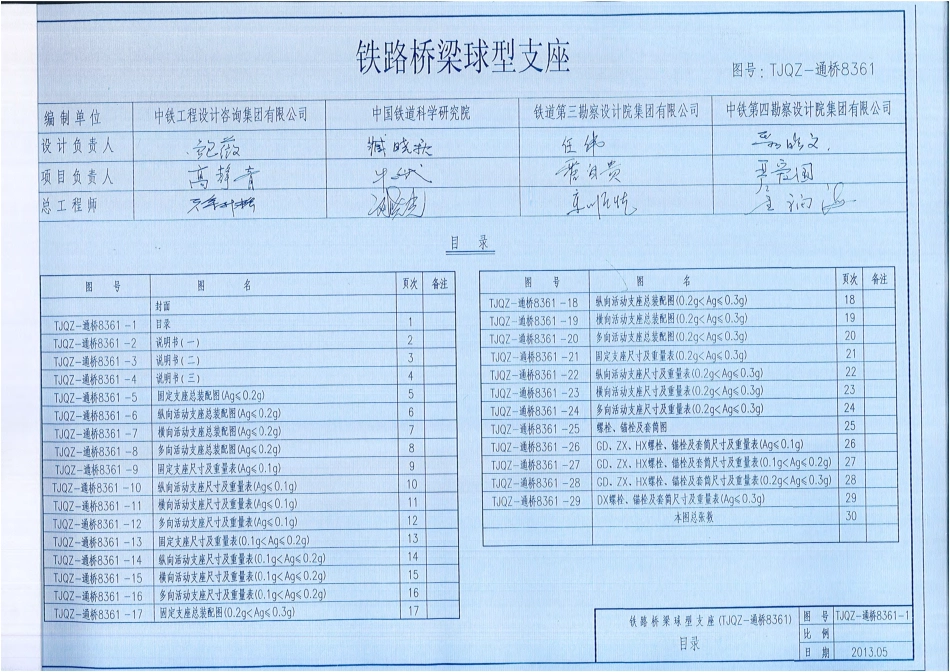 铁路桥梁球型支座
图号：TJQZ-通桥8361
编制单位 中铁工程设计咨询集团有限公司 中国铁道科学研究院 铁道第三勘察设计院集团有限公司 中铁第四勘察设计院集团有限公司
设计负责人
项目负责人 高静青
总工程师
目 录
图 号 图 名 页次 备注
封面
TJQZ-通桥8361-1 目录 1
TJQZ-通桥8361-2 说明书(一) 2
TJQZ-通桥8361-3 说明书(二) 3
TJQZ-通桥8361-4 说明书(三) 4
TJQZ-通桥8361-5 固定支座总装配图(Ag≤0.2g) 5
TJQZ-通桥8361-6 纵向活动支座总装配图(Ag≤0.2g) 6
TJQZ-通桥8361-7 横向活动支座总装配图(Ag≤0.2g) 7
TJQZ-通桥8361-8 多向活动支座总装配图(Ag≤0.2g) 8
TJQZ-通桥8361-9 固定支座尺寸及重量表(Ag≤0.1g) 9
TJQZ-通桥8361-10 纵向活动支座尺寸及重量表(Ag≤0.1g) 10
TJQZ-通桥8361-11 横向活动支座尺寸及重量表(Ag≤0.1g) 11
TJQZ-通桥8361-12 多向活动支座尺寸及重量表(Ag≤0.1g) 12
TJQZ-通桥8361-13 固定支座尺寸及重量表(0.1g<Ag≤0.2g) 13
TJQZ-通桥8361-14 纵向活动支座尺寸及重量表(0.1g<Ag≤0.2g) 14
TJQZ-通桥8361-15 横向活动支座尺寸及重量表(0.1g<Ag≤0.2g) 15
TJQZ-通桥8361-16 多向活动支座尺寸及重量表(0.1g<Ag≤0.2g) 16
TJQZ-通桥8361-17 固定支座总装配图(0.2g<Ag≤0.3g) 17
图 号 图 名 页次 备注
TJQZ-通桥8361-18 纵向活动支座总装配图(0.2g<Ag≤0.3g) 18
TJQZ-通桥8361-19 横向活动支座总装配图(0.2g<Ag≤0.3g) 19
TJQZ-通桥8361-20 多向活动支座总装配图(0.2g<Ag≤0.3g) 20
TJQZ-通桥8361-21 固定支座尺寸及重量表(0.2g<Ag≤0.3g) 21
TJQZ-通桥8361-22 纵向活动支座尺寸及重量表(0.2g<Ag≤0.3g) 22
TJQZ-通桥8361-23 横向活动支座尺寸及重量表(0.2g<Ag≤0.3g) 23
TJQZ-通桥8361-24 多向活动支座尺寸及重量表(0.2g<Ag≤0.3g) 24
TJQZ-通桥8361-25 螺栓、锚栓及套筒图 25
TJQZ-通桥8361-26 GD、ZX、HX螺栓、锚栓及套筒尺寸及重量表(Ag≤0.1g) 26
TJQZ-通桥8361-27 GD、ZX、HX螺栓、锚栓及套筒尺寸及重量表(0.1g<Ag≤0.2g) 27
TJQZ-通桥8361-28 GD、ZX、HX螺栓、锚栓及套筒尺寸及重量表(0.2g<Ag≤0.3g) 28
TJQZ-通桥8361-29 DX螺栓、锚栓及套筒尺寸及重量表(Ag≤0.3g) 29
本图总张数 30
铁路桥梁球型支座(TJQZ-通桥8361)
目录
图 号 TJQZ-通桥8361-1
比 例
日 期 2013.05